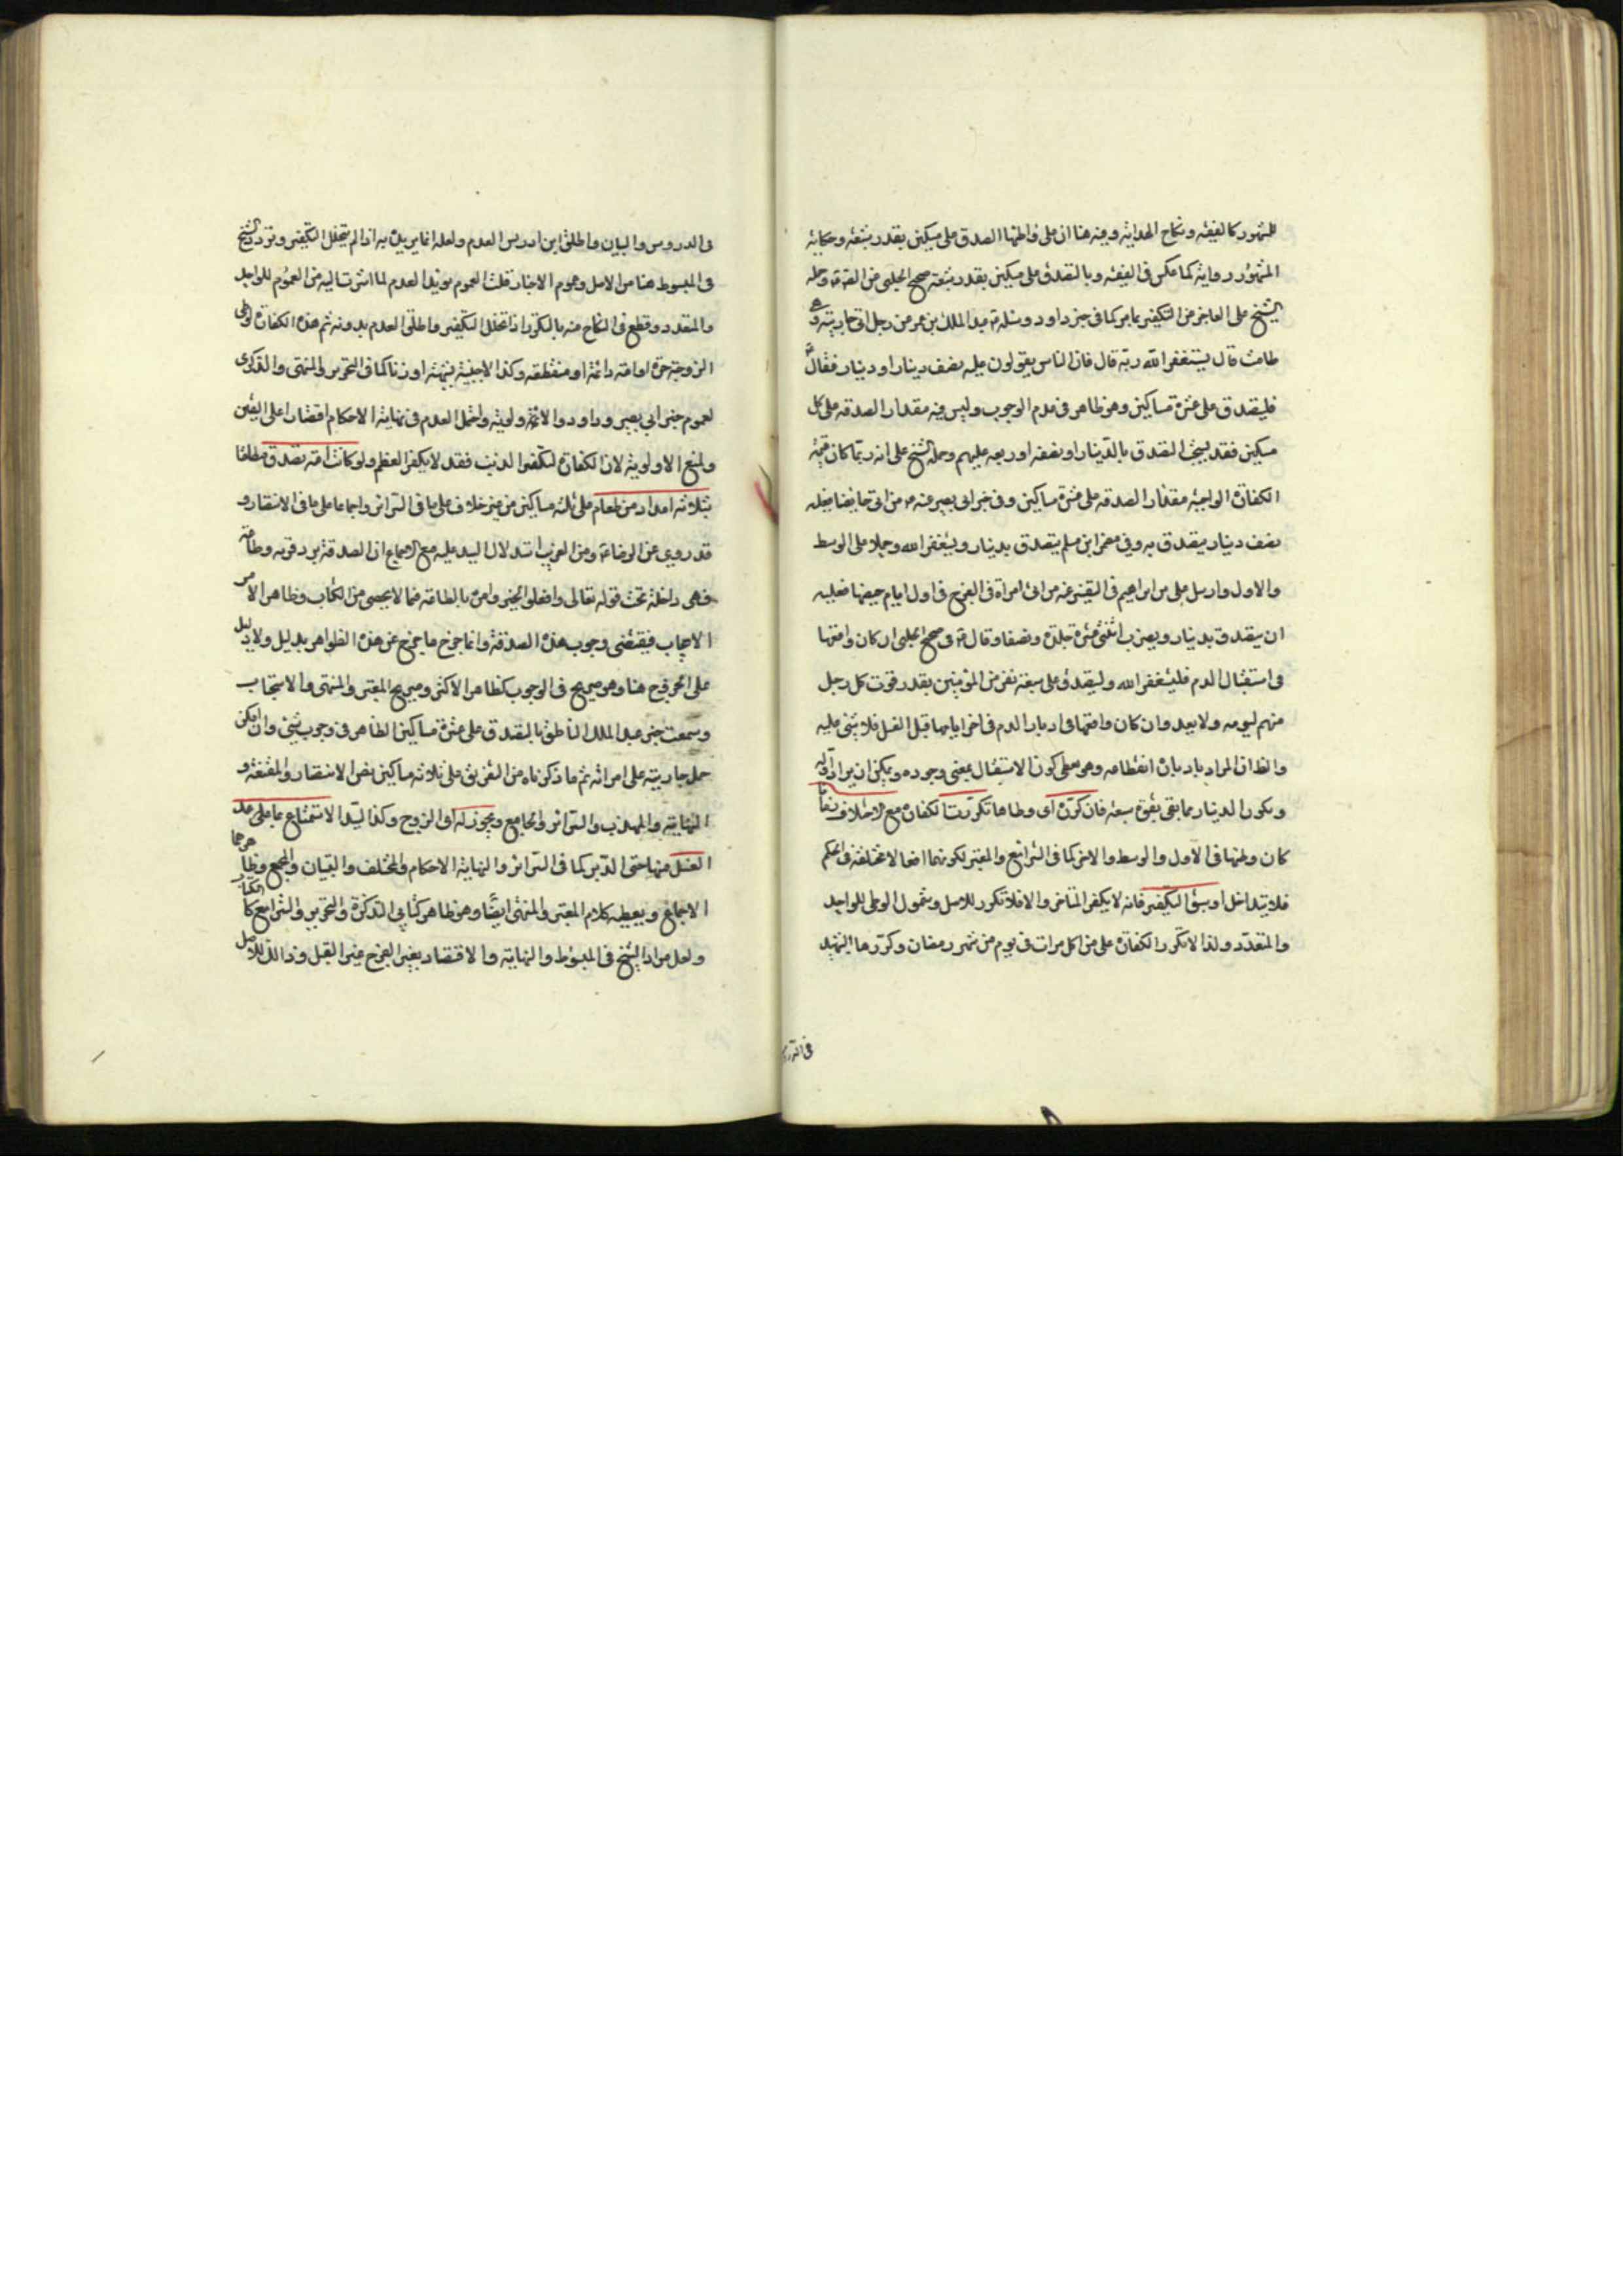 للمشهور كالفقيه ونكاح الهداية وفيه هنا ان على واطئها الصدق على مسكين بقدر شبعه وحكايه
المشهور رواية كما عكس في الفقيه وبالتصدق على مسكين بقدر شبعه صحيح الحلبي عن الصّ ع وحمله
الشيخ على العاجز من التكفير بما مر كما في خبر داود وسئله ع عبد الملك بن عمر عن رجل اتى جاريته وهى
طامث قال يستغفر الله ربه قال فان الناس يقولون عليه نصف دينار او دينار فقال ع
فليتصدق على عشرة مساكين وهو ظاهر في عدم الوجوب وليس فيه مقدار الصدقه على كل
مسكين فقد يستحب التصدق بالدينار او نصفه او ربعه عليهم وحمله الشيخ على انه ربما كان قيمة
الكفارة الواجبة مقدار الصدقه على عشرة مساكين وفي خبر ابى بصير عنه ع من اتى حائضا فعليه
نصف دينار يتصدق به وفي مضمر ابن مسلم يتصدق بدينار ويستغفر الله وحملا على الوسط
والاول وارسل على بن ابراهيم في التفسير عنه ع من اتى امراة في الفرج في اول ايام حيضها فعليه
ان يتصدق بدينار ويضرب اثنتى عشرة جلدة ونصفا وقال ع في صحيح الحلبي ان كان واقعها
في استقبال الدم فليستغفر الله وليتصدق على سبعة نفر من المؤمنين بقدر قوت كل رجل
منهم ليومه ولا يعد وان كان واقعها في ادبار الدم في اخر ايامها قبل الغسل فلا شئ عليه
والظ ان المراد بادباره انقطاعه وهو معطى كون الاستقبال بمعنى وجوده ويمكن ان يراد اوله
ويكون الدينار مما يفى بقوة سبعة فان كرره اى وطاها تكررت الكفارة مع الاختلاف زمانا
كان وطئها في الاول والوسط والاخر كما في الشرائع والمعتبر لكونهما افعالا مختلفة في الحكم
فلا يتداخل او سبق التكفير فانه لا يكفر المتاخر والا فلا تكرر للاصل وشمول الوطى للواحد
والمتعدد ولذا لا تكرر الكفارة على من اكل مرات في يوم من شهر رمضان وكررها الشهيد
في الدروس
في الدروس والبيان واطلق ابن ادريس العدم ولعله انما يريد به اذا لم يتخلل التكفير وتردد الشيخ
في المبسوط هنا من الاصل وعموم الاخبار قلت العموم مؤيد العدم لما اشرنا اليه من العموم للواحد
والمتعدد وقطع في النكاح منه بالتكرر اذا تخلل التكفير واطلق العدم بدونه ثم هذه الكفارة لوطى
الزوجة حرة او امة دائمة او منقطعه وكذا الاجنبية بشبهة او زنا كما في التحرير والمنتهى والذكرى
لعموم خبرى ابى بصير وداود والاولوية واحتمل العدم في نهاية الاحكام اقتصارا على اليقين
ولمنع الاولوية لان الكفارة لتكفير الذنب فقد لا يكفر العظيم ولو كانت امته تصدق مطلقا
بثلاثه امداد من طعام على ثلثه مساكين من غير خلاف على ما في السرائر واجماعا على ما في الانتصار و
قد روى عن الرضا ع ومن الغريب استدلال السيد عليه مع الاجماع ان الصدقة بر وقربه وطاعه
فهى داخلة تحت قوله تعالى وافعلوا الخير وامره بالطاعه فما لا يحصى من الكتاب وظاهر الامر
الايجاب فيقتضى وجوب هذه الصدقة وانما خرج ما خرج عن هذه الظواهر بدليل ولا دليل
على الخروج هنا وهو صريح في الوجوب كظاهر الاكثر وصريح المعتبر والمنتهى والاستحباب
وسمعت خبر عبد الملك الناطق بالتصدق على عشرة مساكين الظاهر في وجوب شئ وان امكن
حمل جاريته على امراته ثم ما ذكرناه من التفريق على ثلاثه مساكين نص الانتصار والمقنعة و
النهاية والمهذب والسرائر والجامع ويجوز له اى الزوج وكذا السيد الاستمتاع بما على محل
الغسل منها حتى الدبر كما في السرائر والنهاية الاحكام والمختلف والتبيان والمجمع وظاهرهما
الاجماع ويعطيه كلام المعتبر والمنتهى ايضا وهو ظاهر كتابى التذكرة والتحرير والشرائع كالكافى
ولعل مراد الشيخ في المبسوط والنهاية والاقتصاد بغير الفرج غير القبل وذلك للاصل